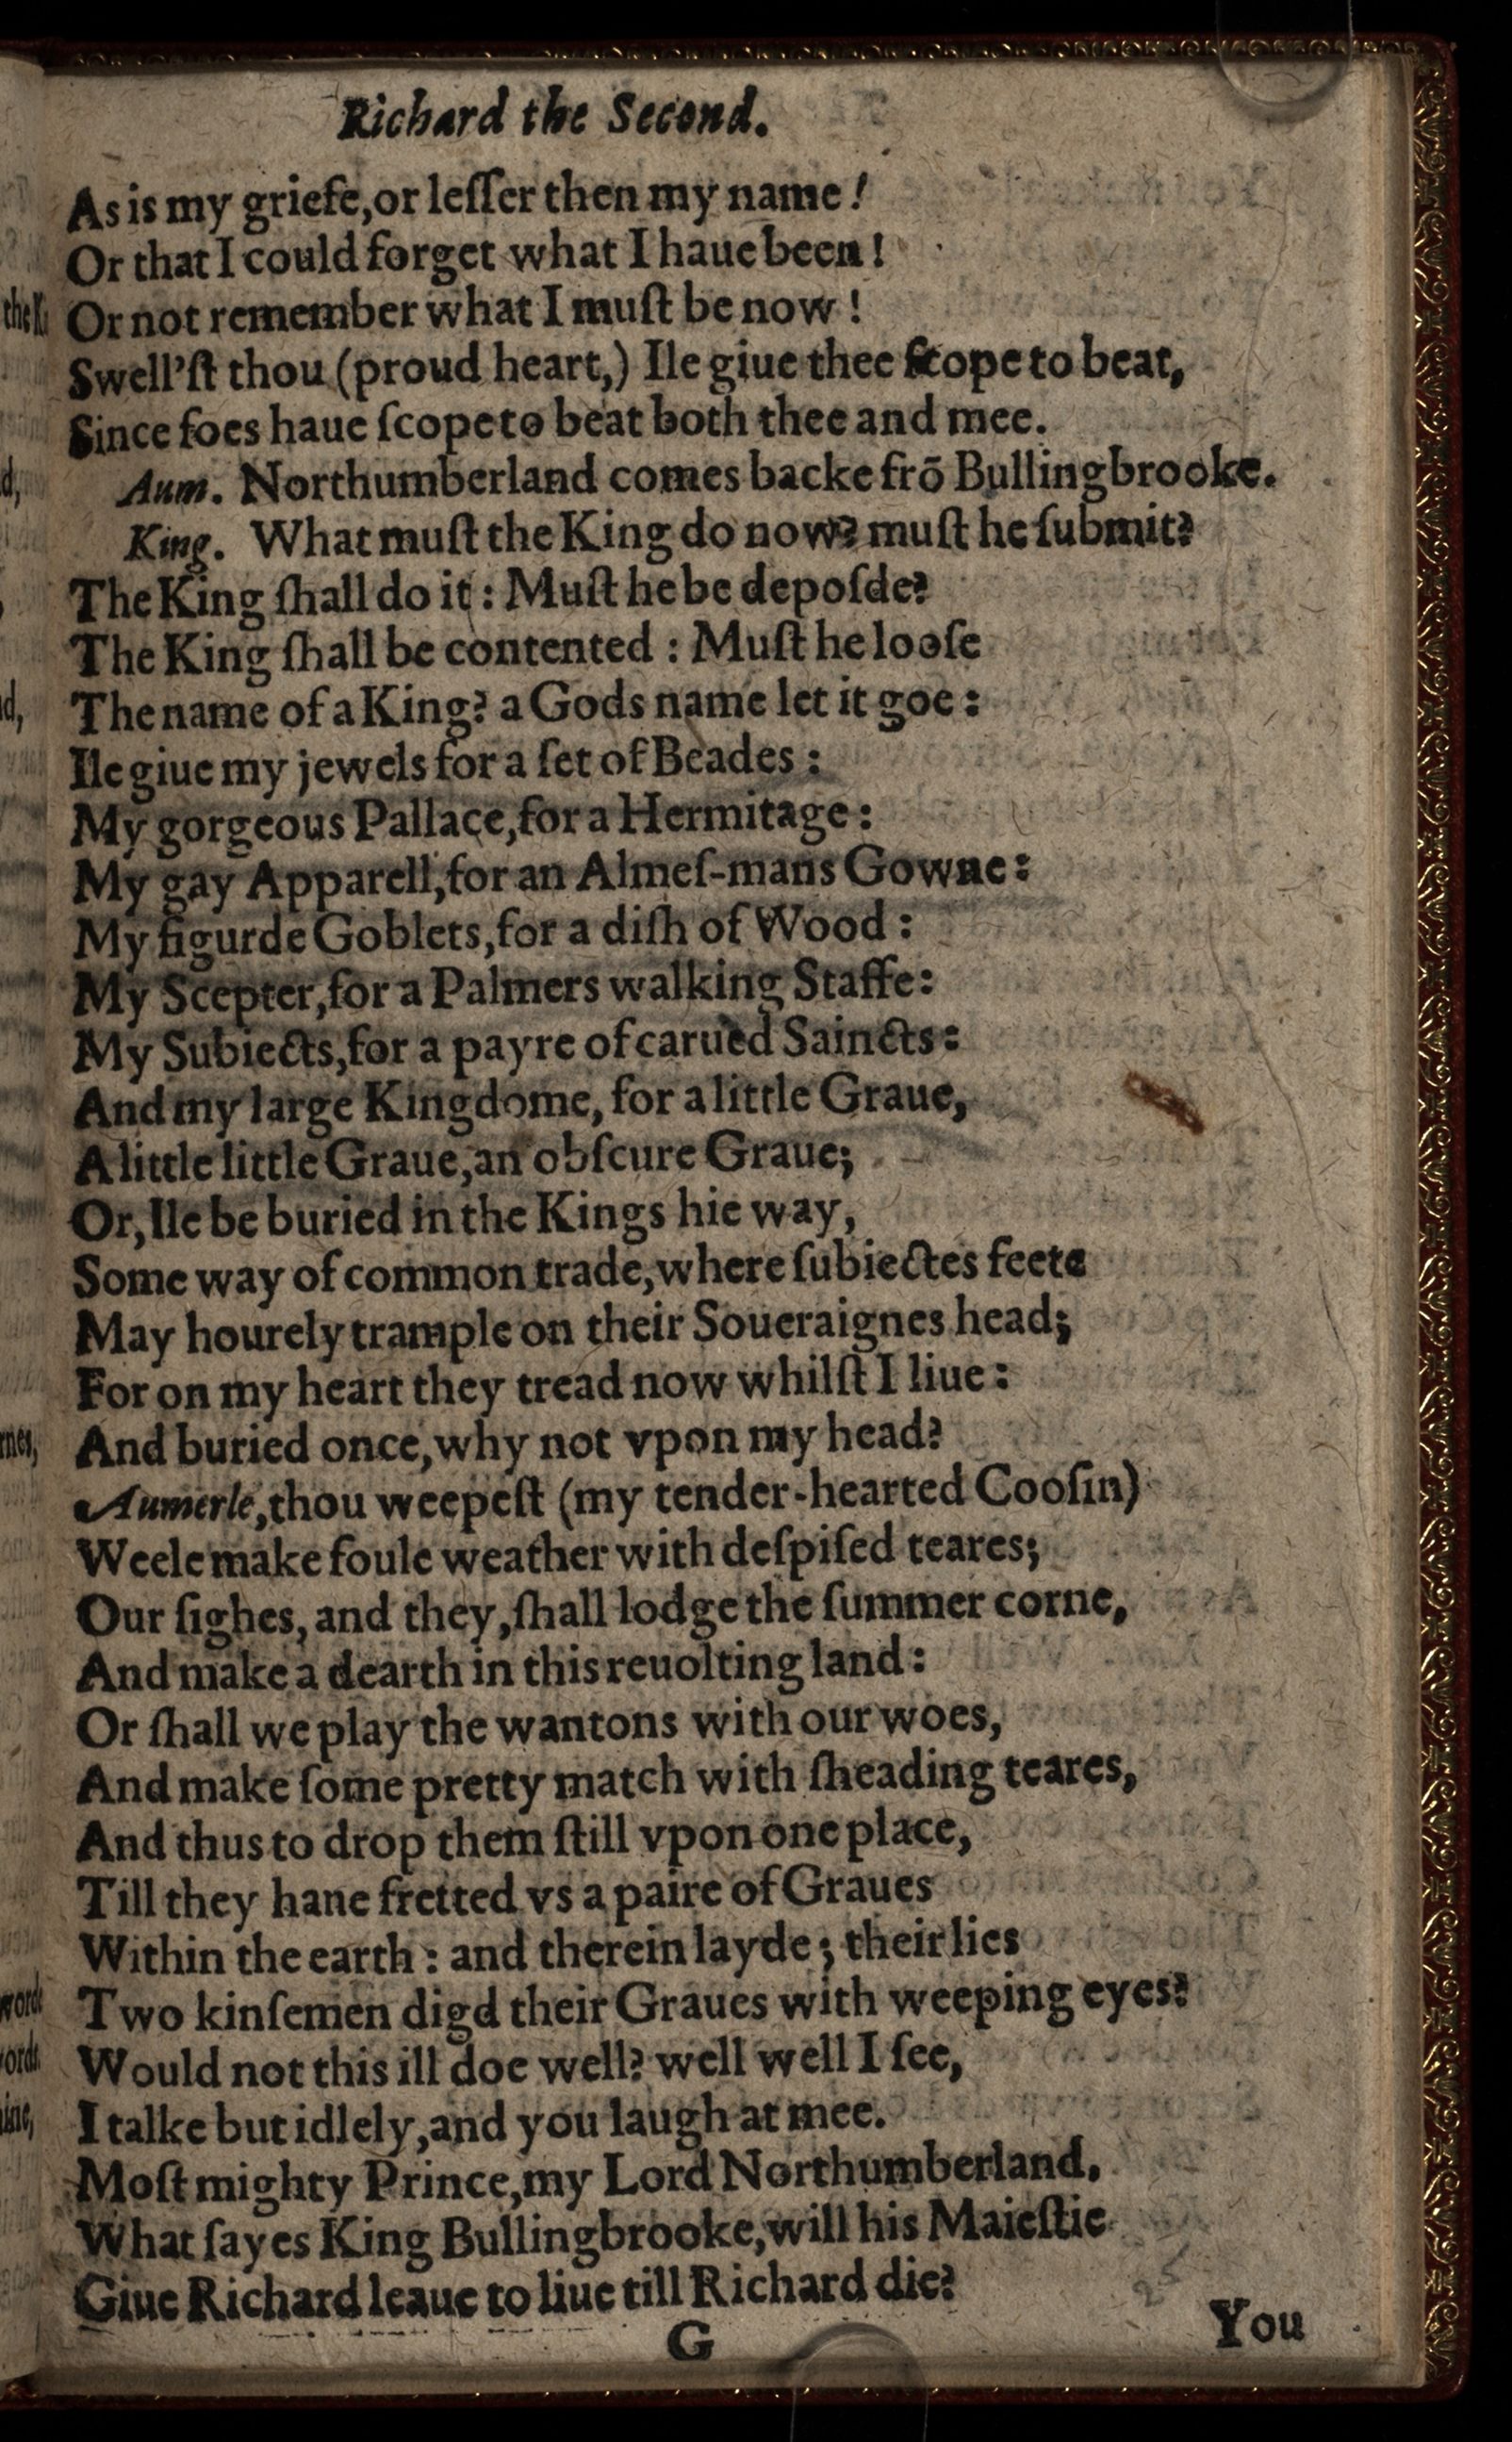 Richard the Second.
As is my griefe, or leſſer then my name!
Or that I could forget what I haue been!
Or not remember what I muſt be now!
Swell'ſt thou (proud heart,) Ile giue thee ſcope to beat,
Since foes haue ſcope to beat both thee and mee.
Aum. Northumberland comes backe frō Bullingbrooke.
King. What muſt the King do now? muſt he ſubmit?
The King ſhall do it: Muſt he be depoſde?
The King ſhall be contented: Muſt he looſe
The name of a King? a Gods name let it goe:
Ile giue my jewels for a ſet of Beades:
My gorgeous Pallace, for a Hermitage:
My gay Apparell, for an Almeſ-mans Gowne:
My figurde Goblets, for a diſh of Wood:
My Scepter, for a Palmers walking Staffe:
My Subiects, for a payre of carued Saincts:
And my large Kingdome, for a little Graue,
A little little Graue, an obſcure Graue;
Or, Ile be buried in the Kings hie way,
Some way of common trade, where ſubiectes feete
May hourely trample on their Soueraignes head;
For on my heart they tread now whilſt I liue:
And buried once, why not vpon my head?
Aumerle, thou weepeſt (my tender-hearted Cooſin)
Weele make foule weather with deſpiſed teares;
Our ſighes, and they, ſhall lodge the ſummer corne,
And make a dearth in this reuolting land:
Or ſhall we play the wantons with our woes,
And make ſome pretty match with ſheading teares,
And thus to drop them ſtill vpon one place,
Till they hane fretted vs a paire of Graues
Within the earth: and therein layde; their lies
Two kinſemen digd their Graues with weeping eyes?
Would not this ill doe well? well well I ſee,
I talke but idlely, and you laugh at mee.
Moſt mighty Prince, my Lord Northumberland,
What ſayes King Bullingbrooke, will his Maieſtie
Giue Richard leaue to liue till Richard die?
G
You